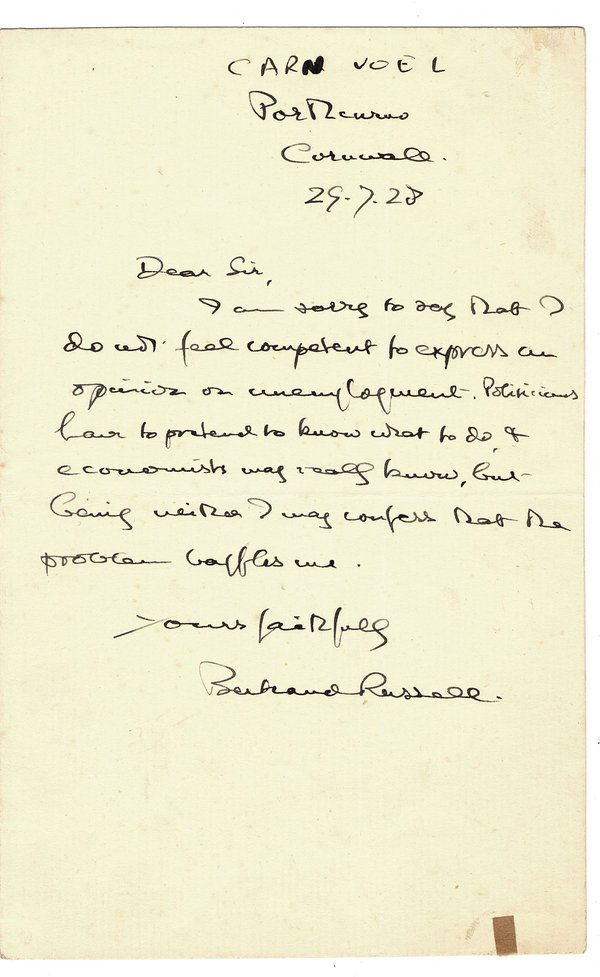 CARN VOEL
Porthcurno
Cornwall.
29.7.28
Dear Sir,
I am sorry to say that I
do not feel competent to express an
opinion on unemployment. Politicians
have to pretend to know what to do, &
economists may really know, but
being neither I may confess that the
problem baffles me.
Yours faithfully
Bertrand Russell.